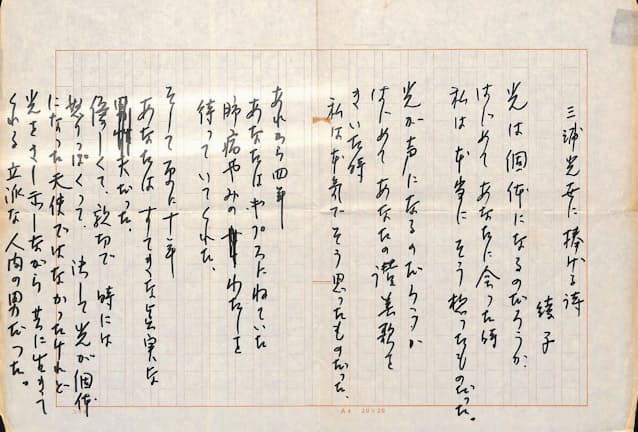 三浦光世に捧げる詩
綾子
光は個体になるのだろうか
はじめてあなたに会った時
私は本当にそう想ったものだった。
光が声になるのだろうか
はじめてあなたの讃美歌を
きいた時
私は本気でそう思ったものだった。
あれから四年
あなたはギプスにねていた
肺病やみのわたしを
待っていてくれた。
そして更に十年
あなたはすてきな誠実な
夫だった。
優しくて、親切で 時には
怒りっぽくって、決して光が個体
になった天使ではなかったけれど
光をさし示しながら共に生きて
くれる立派な人間の男だった。
A4 20×20